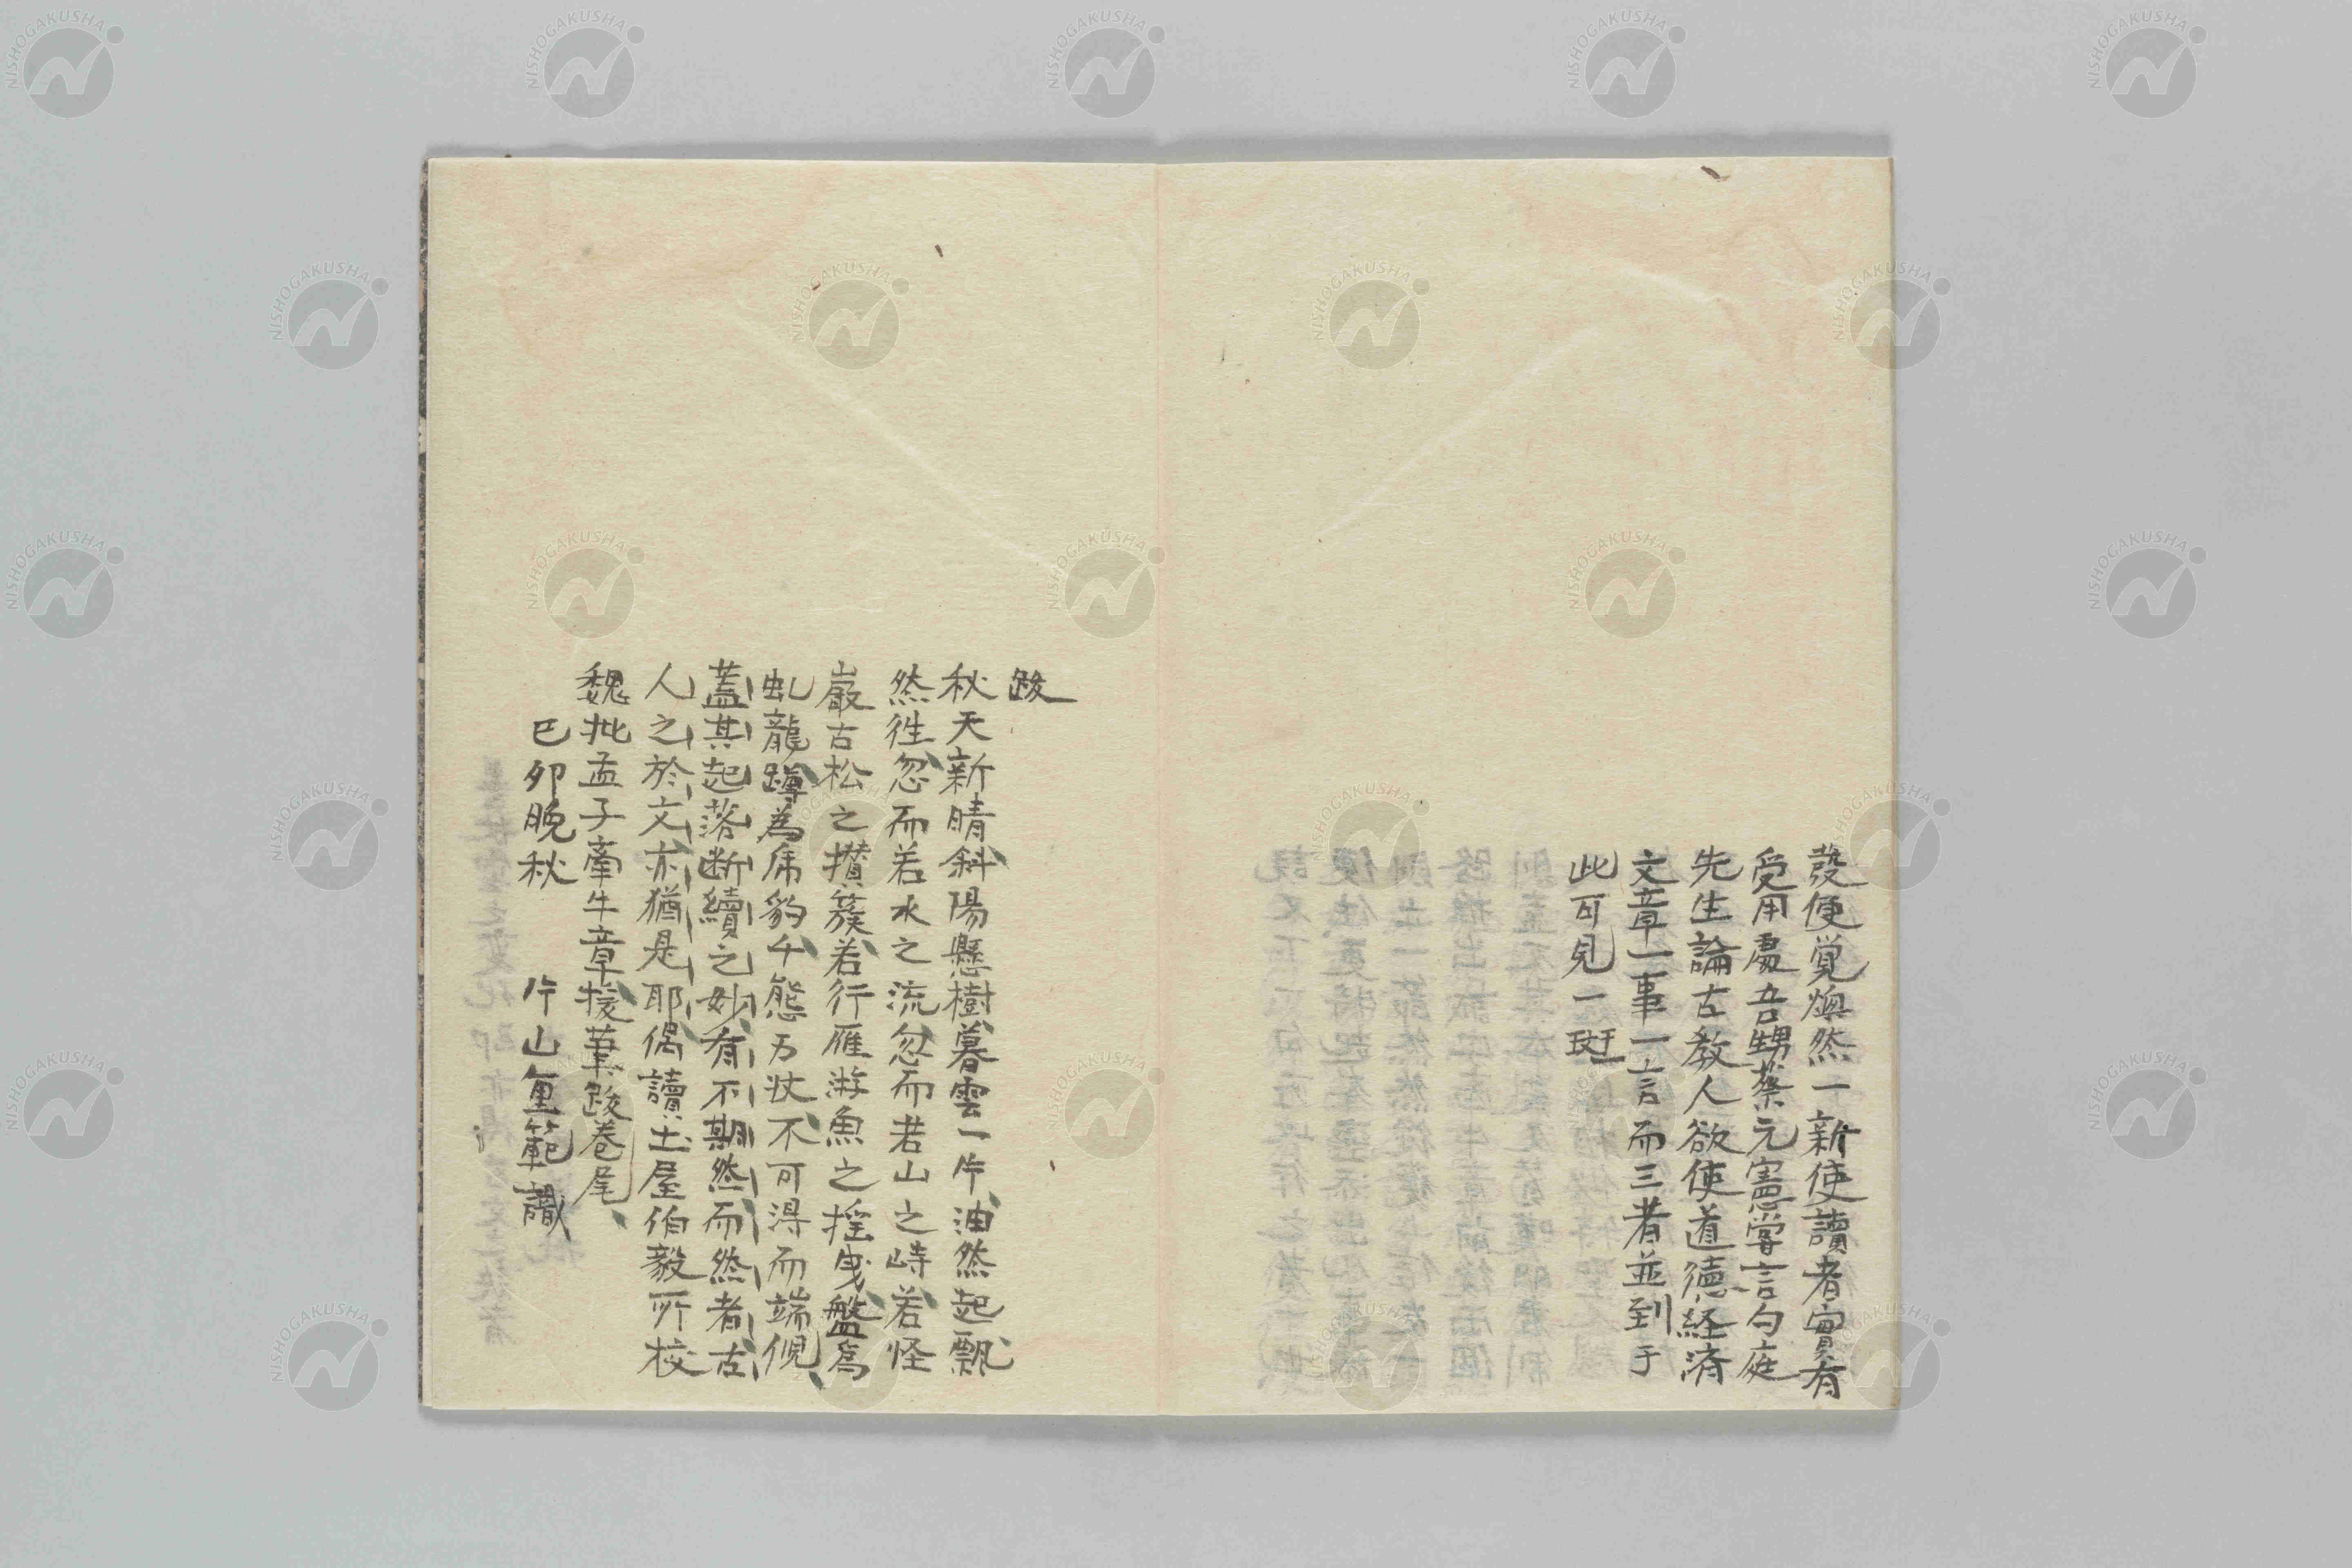 発便覚煥然一新使讀者實有
受用處吾甥蔡元憲嘗言勺庭
先生論古教人欲使道徳経済
文章一事一言而三者並到于
此可見一斑
跋
秋天新晴斜陽懸樹暮雲一片油然起飄
然徃忽而若水之流忽而若山之峙若怪
巖古松之攅簇若行雁游魚之揺曳盤為
虬龍蹲為虎豹千態万状不可得而端倪
蓋其起落断續之妙有不期然而然者古
人之於文亦猶是耶偶讀土屋伯毅所校
魏批孟子牽牛章援筆跋巻尾
巳卯晩秋　　片山重範識
NISHOGAKUSHA